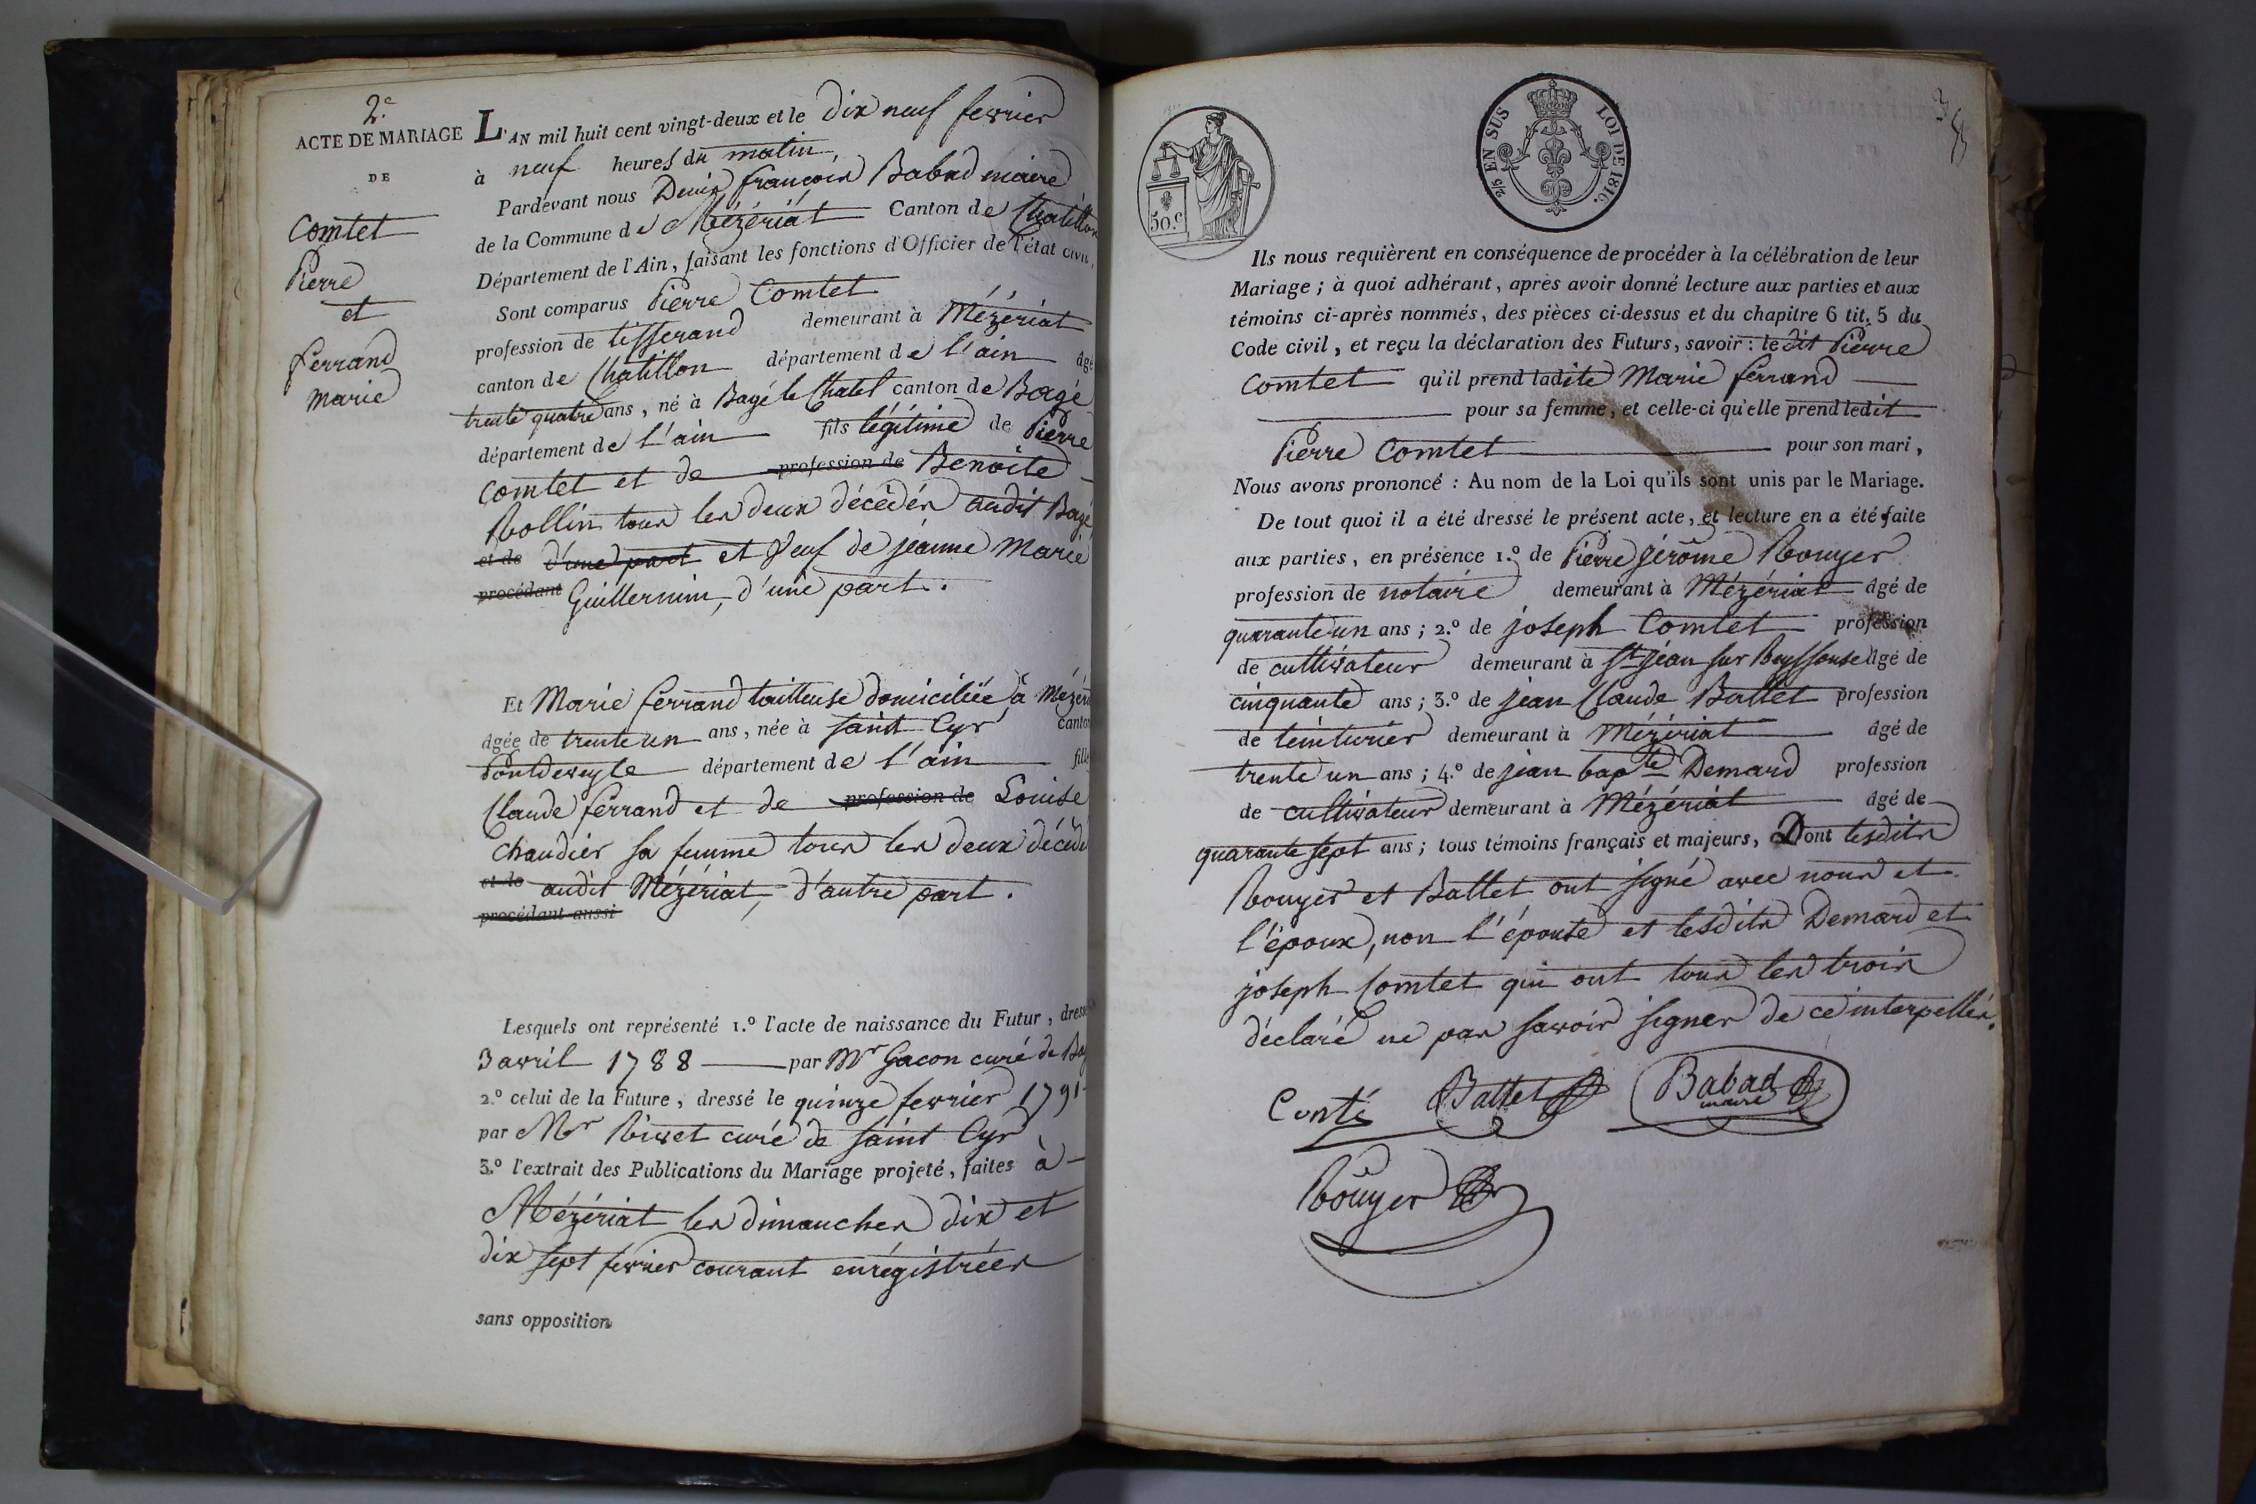 2.e
ACTE DE MARIAGE
DE
Comtet
Pierre
et
Ferrand
Marie
L'AN mil huit cent vingt-deux et le dix neuf fevrier
à neuf heures du matin
Pardevant nous Denis françois Babad maire
de la Commune de Mézériat Canton de Chatillon
Département de l'Ain, faisant les fonctions d'Officier de l'état civil,
Sont comparus Pierre Comtet
profession de tisserand demeurant à Mézériat
canton de Chatillon département de l'ain âgé
trente quatre ans, né à Bagé le Chatel canton de Bagé
département de l'ain fils légitime de Pierre
Comtet et de profession de Benoite
Rollin tous les deux décédés audit Bagé
et de d'une part et Veuf de jeanne Marie
procédant Guillermin, d'une part.
Et Marie ferrand tailleuse domiciliée à Mézéri
âgée de trente un ans, née à saint Cyr canton
Pontdeveyle département de l'ain fille
Claude ferrand et de profession de Louise
Chaudier sa femme tous les deux décédé
et de audit Mézériat, d'autre part.
procédant aussi
Lesquels ont représenté 1.º l'acte de naissance du Futur, dressé
3 avril 1788 par Mr Gacon curé de Bag
2.º celui de la Future, dressé le quinze fevrier 1791
par Mr Rivet curé de saint Cyr
3.º l'extrait des Publications du Mariage projeté, faites à
Mézériat les dimanches dix et
dix sept fevrier courant enrégistrées
sans opposition
50.c
2/5 EN SUS LOI DE 1816.
Ils nous requièrent en conséquence de procéder à la célébration de leur
Mariage; à quoi adhérant, après avoir donné lecture aux parties et aux
témoins ci-après nommés, des pièces ci-dessus et du chapitre 6 tit. 5 du
Code civil, et reçu la déclaration des Futurs, savoir: le dit Pierre
Comtet qu'il prend ladite Marie ferrand
pour sa femme, et celle-ci qu'elle prend ledit
Pierre Comtet pour son mari,
Nous avons prononcé: Au nom de la Loi qu'ils sont unis par le Mariage.
De tout quoi il a été dressé le présent acte, et lecture en a été faite
aux parties, en présence 1.º de Pierre jérôme Rouyer
profession de notaire demeurant à Mézériat âgé de
quarante un ans; 2.º de joseph Comtet profession
de cultivateur demeurant à St jean sur Reyssouse âgé de
cinquante ans; 3.º de jean Claude Battet profession
de teinturier demeurant à Mézériat âgé de
trente un ans; 4.º de jean bapte Demard profession
de cultivateur demeurant à Mézériat âgé de
quarante sept ans; tous témoins français et majeurs, Dont lesdits
Rouyer et Battet ont signé avec nous et
l'époux, non l'épouse et lesdits Demard et
joseph Comtet qui ont tous les trois
déclaré ne pas savoir signer de ce interpellés.
Conté Battet Babad
maire
Rouyer